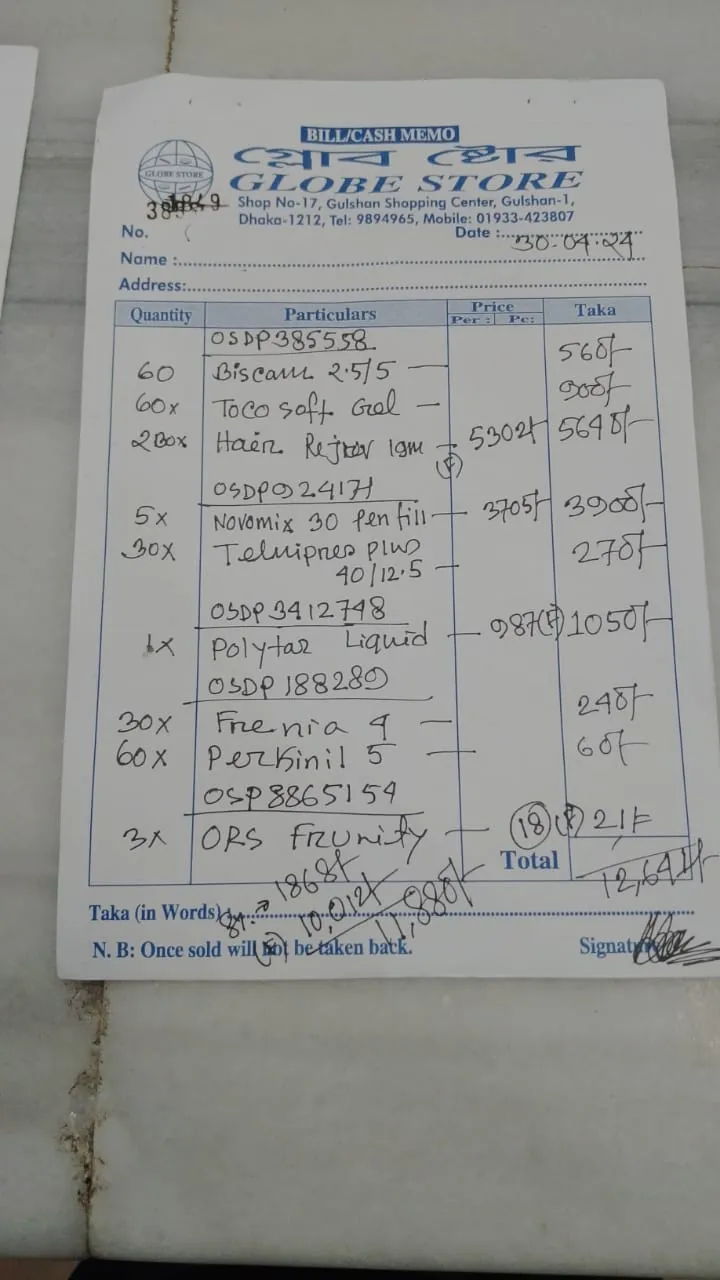 BILL/CASH MEMO
গ্লোব ষ্টোর
GLOBE STORE
GLOBE STORE
Shop No-17, Gulshan Shopping Center, Gulshan-1,
Dhaka-1212, Tel: 9894965, Mobile: 01933-423807
No.
Date : 30-04-24
Name :
Address:
Quantity Particulars Price Taka
Per : Pc:
OSDP385558
60 2.5/5 — 560/-
60x Toco soft Gel — 900/-
2Box Hair 1gm — 5302/- 5640/-
OSDP924171
5x Novomix 30 penfill — 3705/- 3900/-
30x Plus 270/-
40/12.5 —
OSDP3412748
1x Polytar Liquid — 987 1050/-
OSDP188289
30x Frenia 4 — 240/-
60x Perkinil 5 — 60/-
OSP8865154
3x ORS Frunity — 18 21/-
Total 12,641/-
1868/-
Taka (in Words) : 10,012/-
11,880/-
N. B: Once sold will not be taken back. Signature